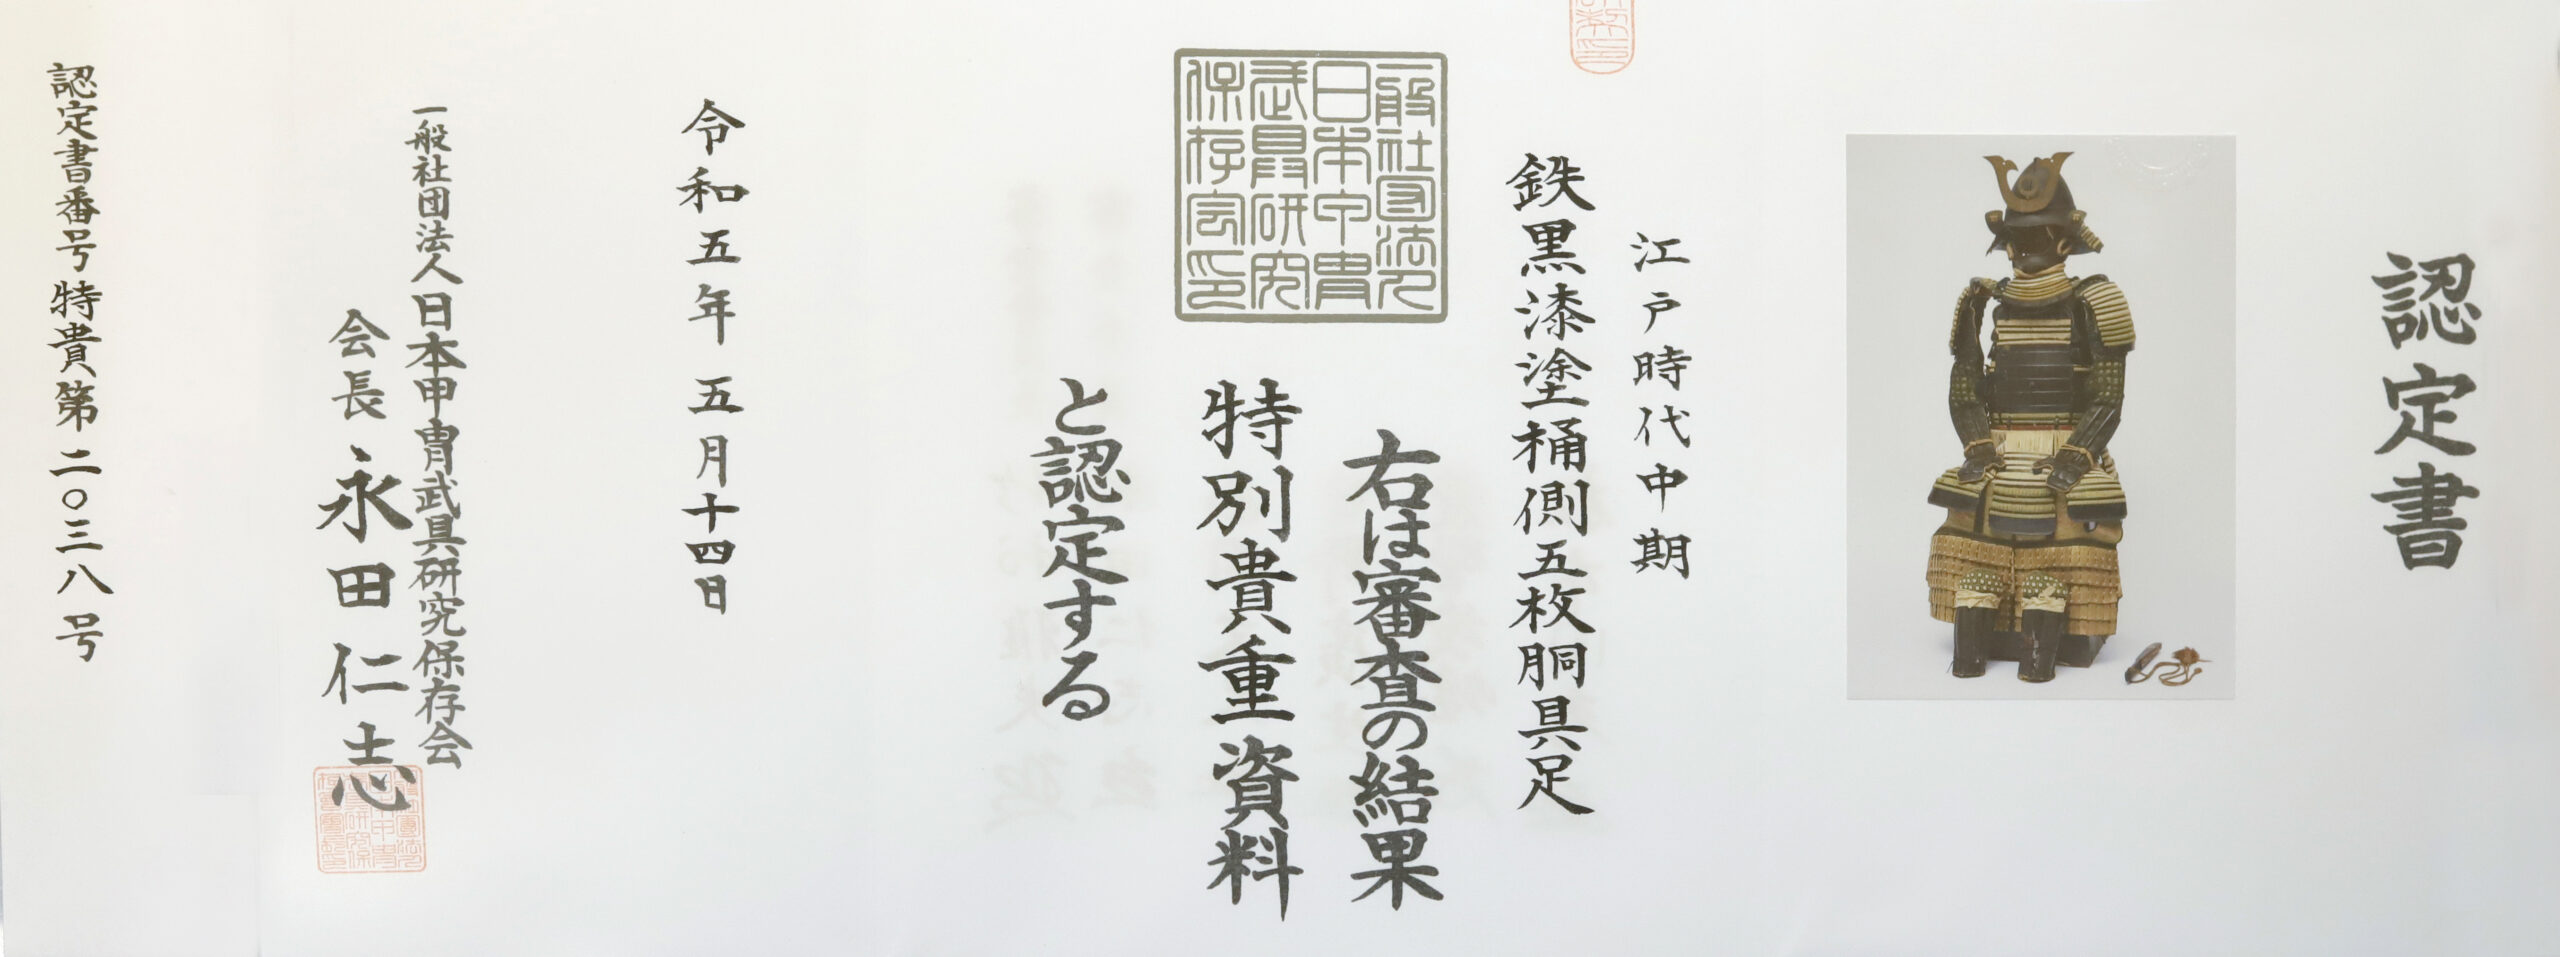 認定書
江戸時代中期
鉄黒漆塗桶側五枚胴具足
右は審査の結果
特別貴重資料
と認定する
一般社団法人
日本甲冑
武具研究
保存会印
令和五年 五月十四日
一般社団法人日本甲冑武具研究保存会
会長 永田仁志
認定書番号 特貴第二〇三八号